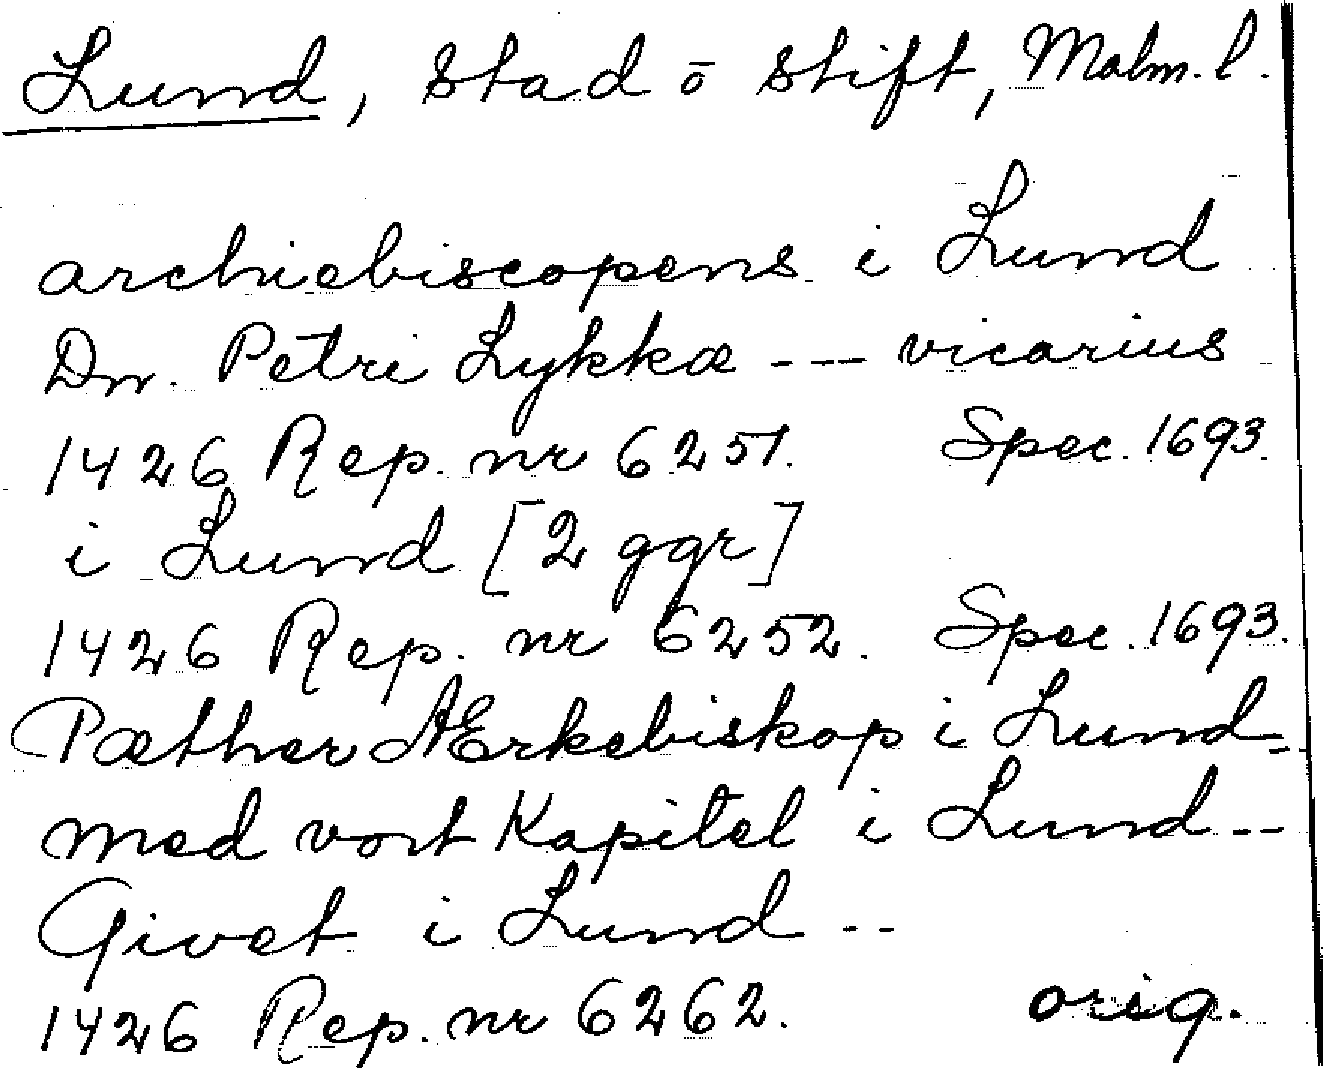 Lund, stad o stift, Malm. l.
archiebiscopens i Lund
Dn. Petri Lykkæ --- vicarius
1426 Rep. nr 6251. Spec. 1693.
i Lund [2 ggr]
1426 Rep. nr 6252. Spec. 1693.
Pæther AErkebiskop i Lund --
med vort Kapitel i Lund --
Givet i Lund --
1426 Rep. nr 6262. orig.